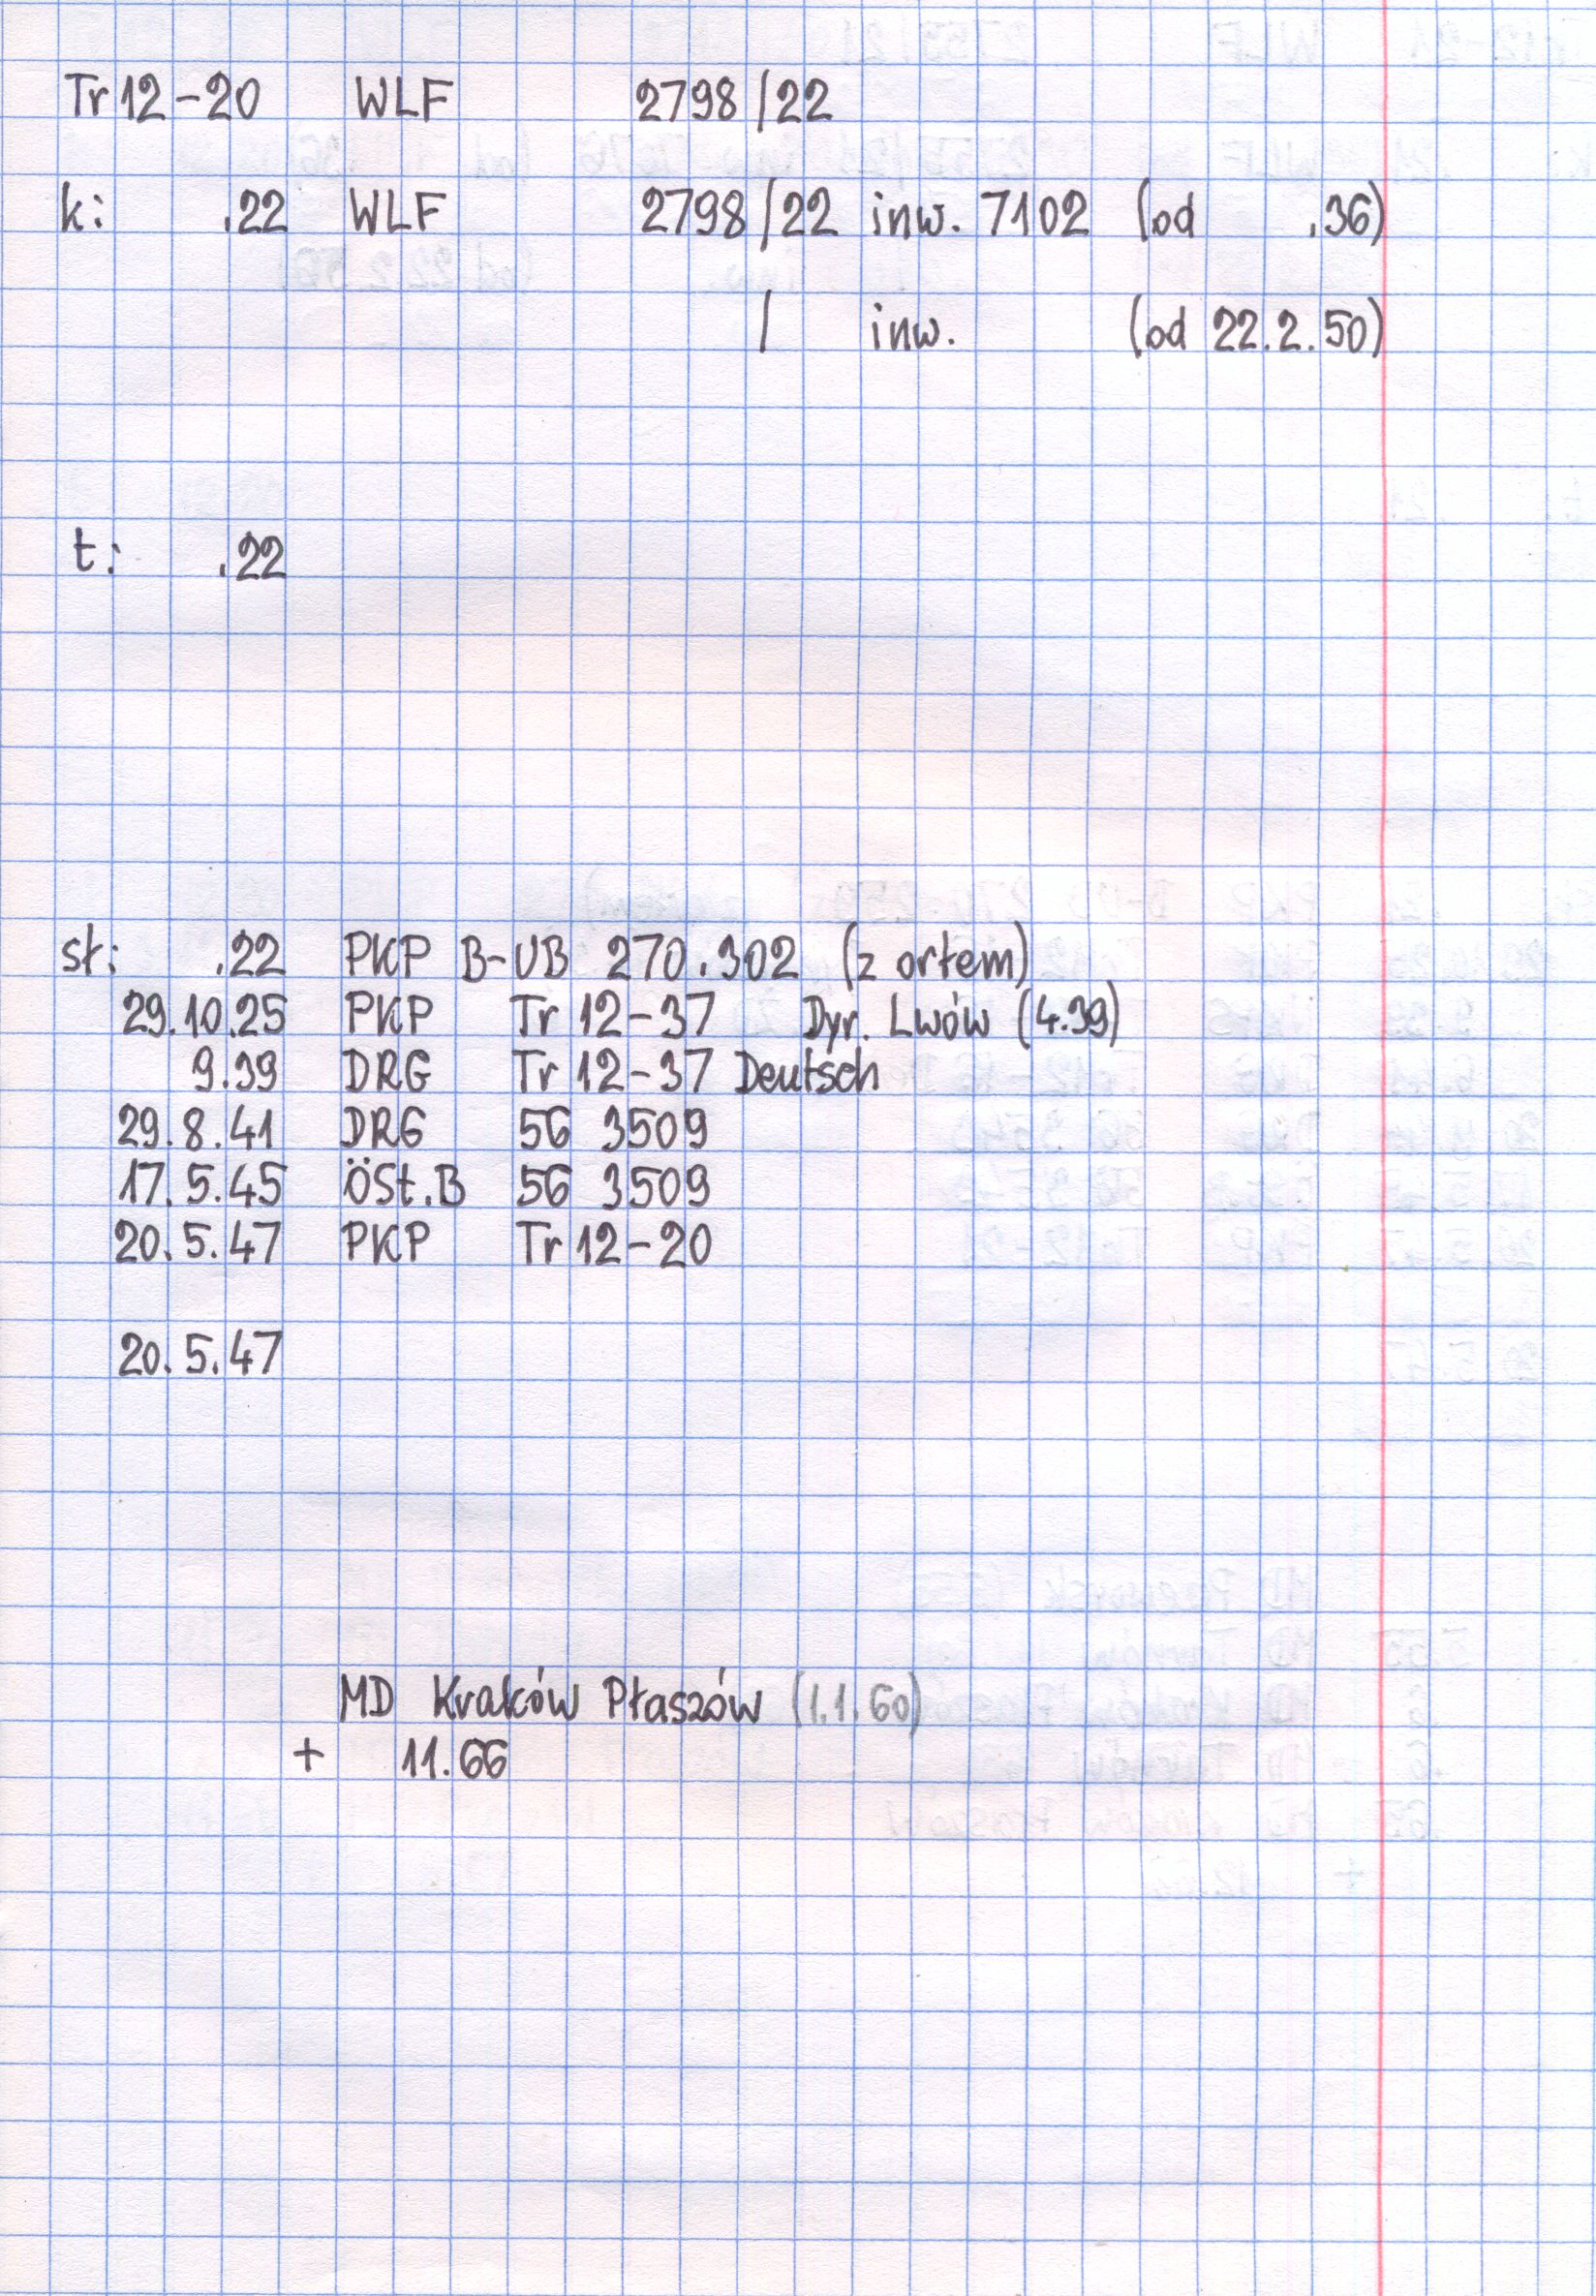 Tr 12-20 WLF 2798/22
k: .22 WLF 2798/22 inw. 7102 (od .36)
/ inw. (od 22.2.50)
t: .22
sł: .22 PKP B-UB 270.302 (z orłem)
29.10.25 PKP Tr 12-37 Dyr. Lwów (4.39)
9.39 DRG Tr 12-37 Deutsch
29.8.41 DRG 56 3509
17.5.45 ÖSt.B 56 3509
20.5.47 PKP Tr 12-20
20.5.47
MD Kraków Płaszów (1.1.60)
+ 11.66